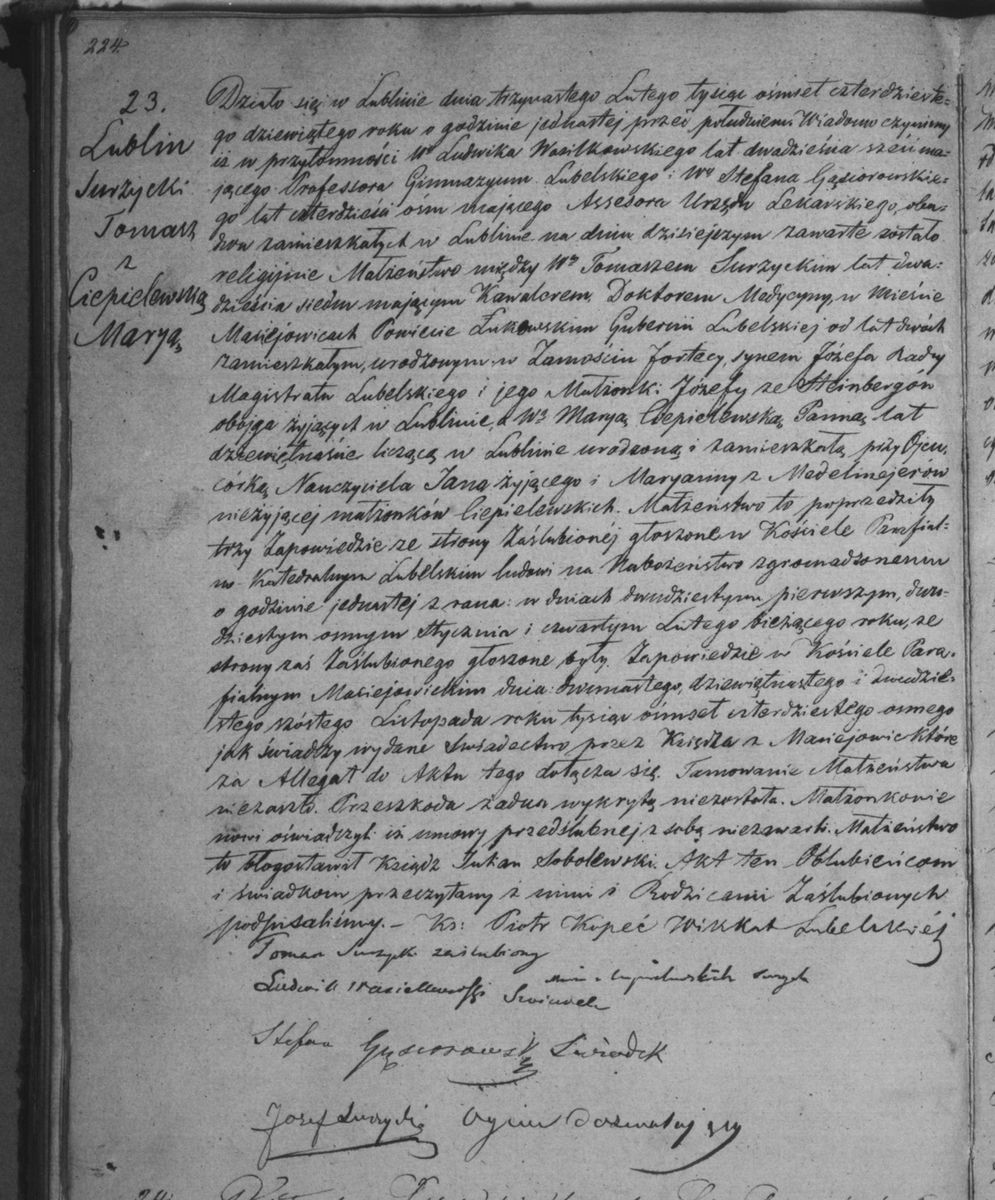 224.
23.
Lublin
Surzycki
Tomasz
z
Ciepielewską
Maryą
Działo się w Lublinie dnia trzynastego Lutego tysiąc ośmset czterdzieste-
go dziewiątego roku o godzinie jednastej przed południem. Wiadomo czyniemy
iż w przytomności Wo Ludwika Wasilkowskiego lat dwadzieścia sześć ma-
jącego Professora Gimnazyum Lubelskiego i Wo Stefana Gąsiorowskie-
go lat czterdzieści ośm mającego Assesora Urzędu Lekarskiego, oby-
dwu zamieszkałych w Lublinie na dniu dzisiejszym zawarte zostało
religijnie Małżeństwo między Wm Tomaszem Surzyckim lat dwa-
dzieścia siedm mającym Kawalerem, Doktorem Medycyny, w Mieście
Maciejowicach Powiecie Łukowskim Gubernii Lubelskiej od lat dwóch
zamieszkałym, urodzonym w Zamościu Fortecy, synem Józefa Radzy
Magistratu Lubelskiego i jego Małżonki Józefy ze Steinbergów
obojga żyjących w Lublinie, a Wą Maryą Ciepielewską Panną lat
dziewiętnaście liczącą w Lublinie urodzoną i zamieszkałą przy Ojcu,
córką Nauczyciela Jana żyjącego i Maryanny z Medelmejerów
nieżyjącej małżonków Ciepielewskich. Małżeństwo to poprzedziły
trzy Zapowiedzie ze strony Zaślubionéj głoszone w Kościele Parafial-
no-Katedralnym Lubelskim ludowi na Nabożeństwo zgromadzonemu
o godzinie jednastej z rana: w dniach dwudziestym pierwszym, dwu-
dziestym osmym Stycznia i czwartym Lutego bieżącego roku, ze
strony zaś Zaślubionego głoszone były Zapowiedzie w Kościele Para-
fialnym Maciejowickim dnia: dwunastego, dziewiętnastego i dwudzie-
stego szóstego Listopada roku tysiąc ośmset czterdziestego osmego
jak świadczy wydane Świadectwo przez Księdza z Maciejowic które
za Allegat do Aktu tego dołącza się. Tamowanie Małżeństwa
niezaszło. Przeszkoda żadna wykrytą niezostała. Małżonkowie
nowi oświadczyli iż umowy przedślubnej z sobą niezawarli. Małżeństwo
to błogosławił Ksiądz Julian Sobolewski. Akt ten Oblubieńcom
i świadkom przeczytany z nimi i Rodzicami Zaślubionych
podpisaliśmy. – Ks: Piotr Kopeć Wikkat Lubelskiéj
Tomasz Surzycki zaślubiony
Ludwik Wasilkowski Świadek
Stefan Gąsiorowski Świadek
Józef Surzycki Oyciec
24.